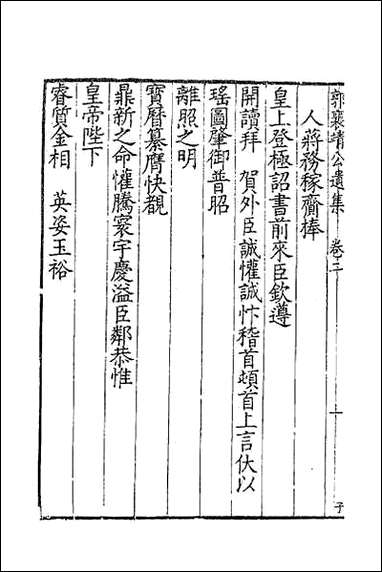 郭襄靖公遺集 卷三 十 子
人蔣務稼齎捧
皇上登極詔書前來臣欽遵
開讀拜 賀外臣誠懽誠忭稽首頓首上言伏以
瑤圖肇御普昭
離照之明
寶曆纂膺快覩
鼎新之命懽騰寰宇慶溢臣鄰恭惟
皇帝陛下
睿質金相 英姿玉裕